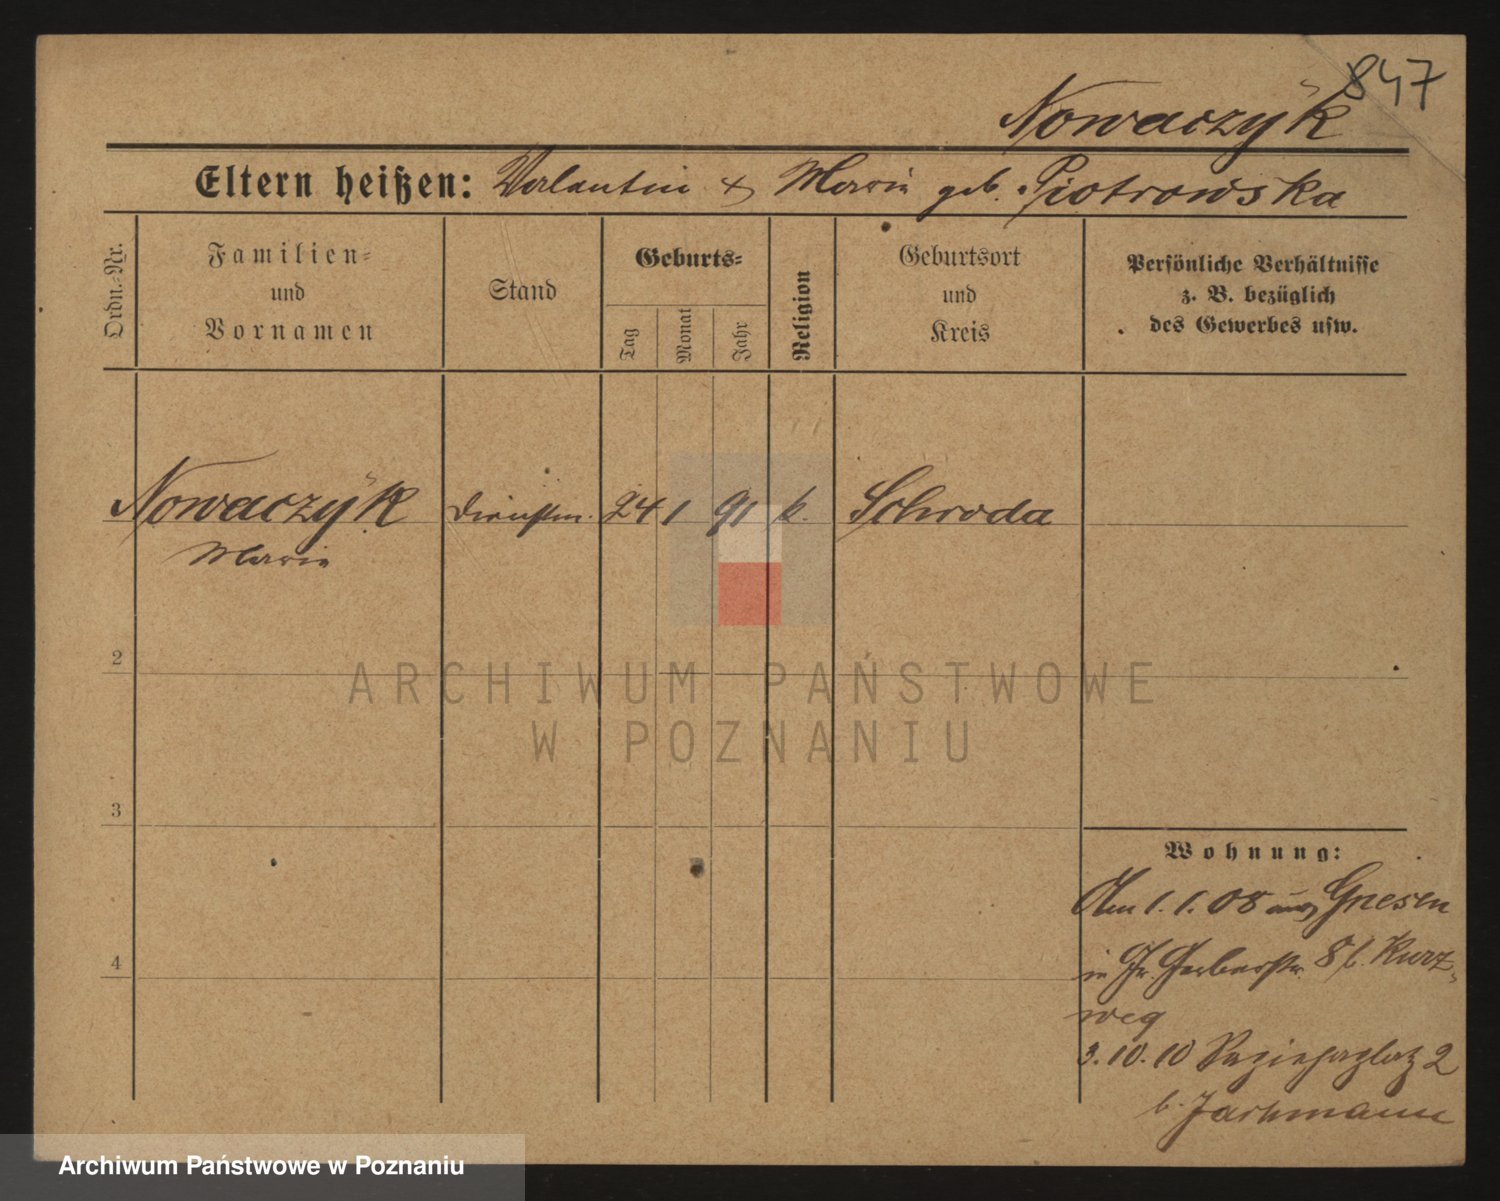 847
Nowaczyk
Eltern heißen: Valentin & Marie geb. Piotrowska
Ordn.-Nr.
Familien-
und
Vornamen
Stand
Geburts-
Tag
Monat
Jahr
Religion
Geburtsort
und
Kreis
Persönliche Verhältnisse
z. B. bezüglich
des Gewerbes usw.
Nowaczyk Dienstm. 24 1 91 k. Schroda
Marie
2
ARCHIWUM PAŃSTWOWE
W POZNANIU
3
Wohnung:
Am 1.1.08 aus Gnesen
4
in Gr. Gerberstr. 8 b. Kurz-
weg
3.10.10 2
b. Jachmann
Archiwum Państwowe w Poznaniu